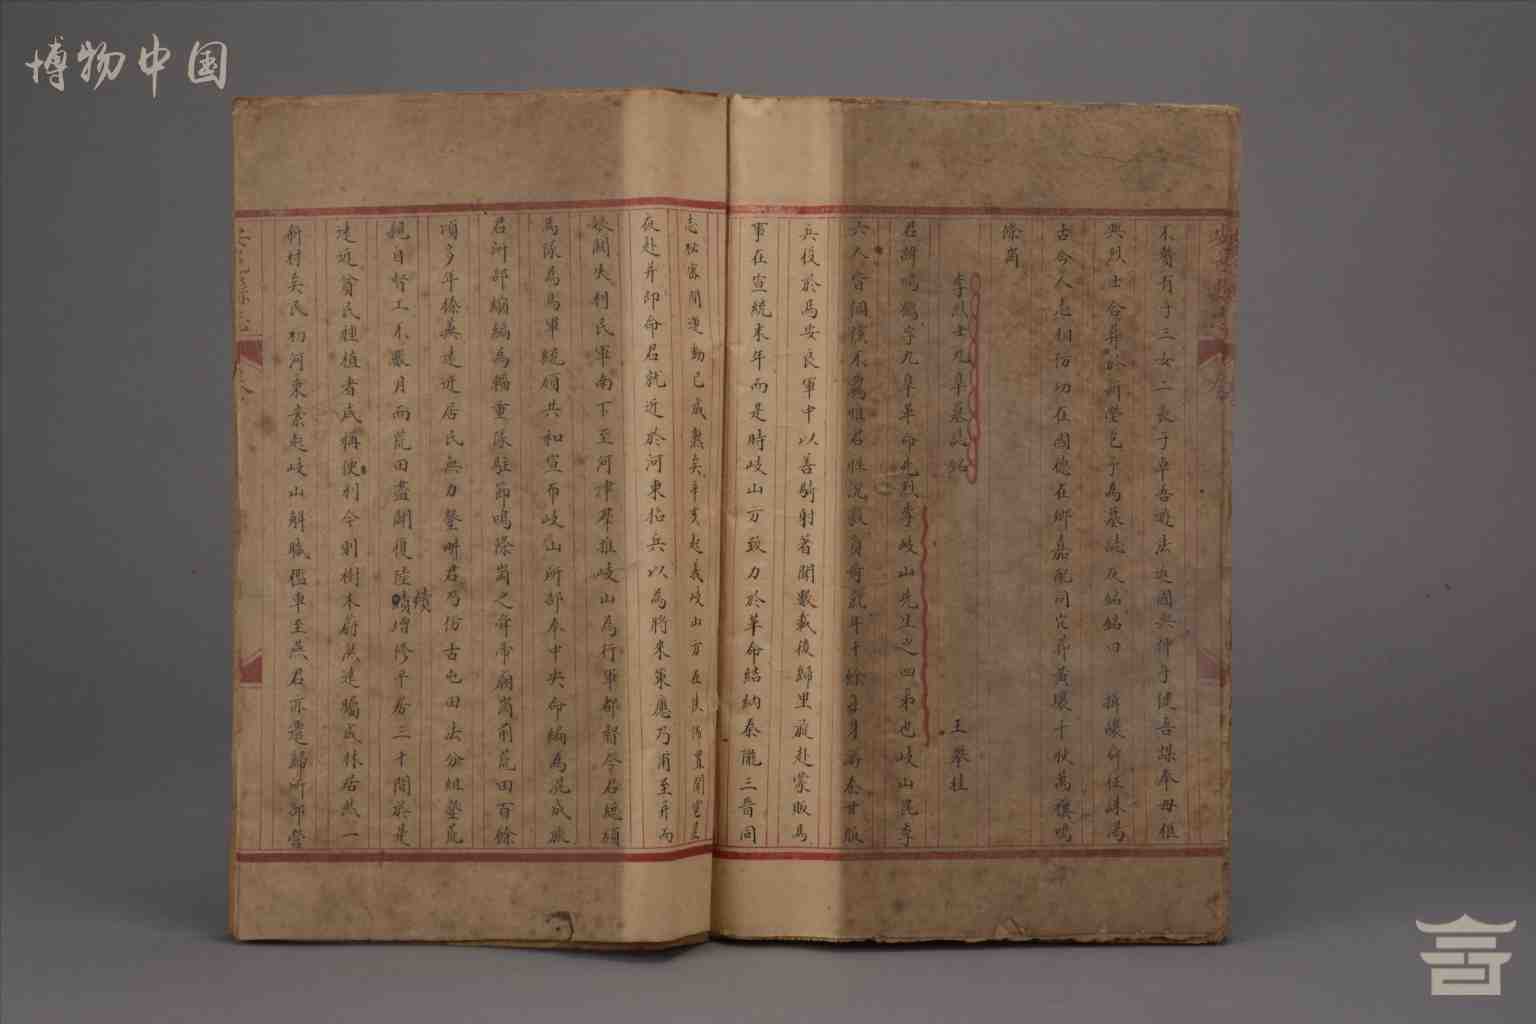 博物中国
不贅有子三女二長子卓吾遊法返國與仲子健吾謀奉母柩
與烈士合葬於新塋乞予為墓誌反銘銘曰 攘攘
古今人志相仿功在國德在鄉嘉配同穴葬黃壤千秋萬禩鳴
條崗
李烈士九皋墓誌銘
王攀桂
君諱鳴鶴字九皋革命先烈李岐山先生之四弟也岐山昆李
六人皆倜儻不羈惟君性沉毅負奇氣年十餘
兵役於馬安良軍中以善騎射著聞數載後歸里旋赴蒙販馬
軍在宣統末年而是時岐山方致力於革命結納秦隴三晉同
志秘密間運動已成熟矣辛亥起義岐山方在
夜赴并即命君就近於河東招兵以為將來策應乃甫至并而
娘關失利民軍南下至河津群推岐山為行軍都督令君總領
馬隊為馬軍統領共和宣布岐山所部奉中央命編為混成旅
君所部縮編為輜重隊駐節鳴條崗之舜帝廟崗前荒田百餘
頃多年條蕪遠近居民無力墾畊君乃仿古屯田法分組墾荒
親自督工不數月而荒田盡闢復陸續增修平房三十間於是
遠近貧民種植者咸稱便利令到樹木蔚然遠矚成林居然一
新村矣民初河東素起岐山解職檻車至燕君亦還歸所部營